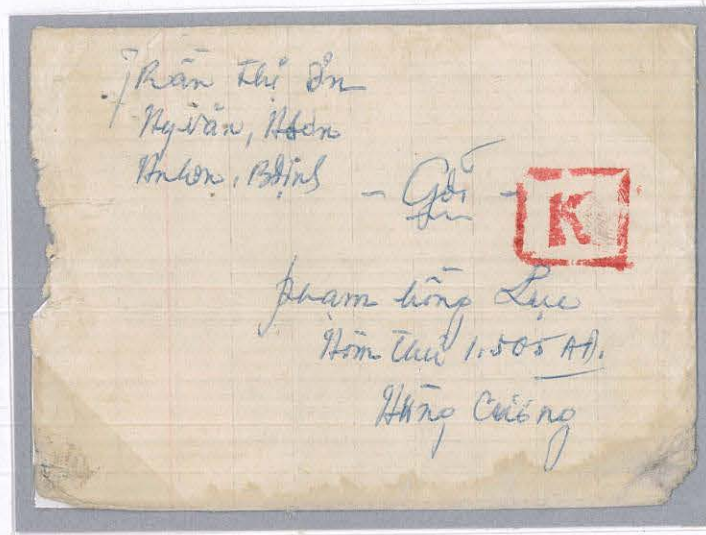 Trần Thị Ơn
Mỹ Văn, Nhơn
An Nhơn, BĐịnh
- Gởi -
K
Phạm Hồng Lực
Hòm Thư 1.505 AĐ.
Hùng Cường